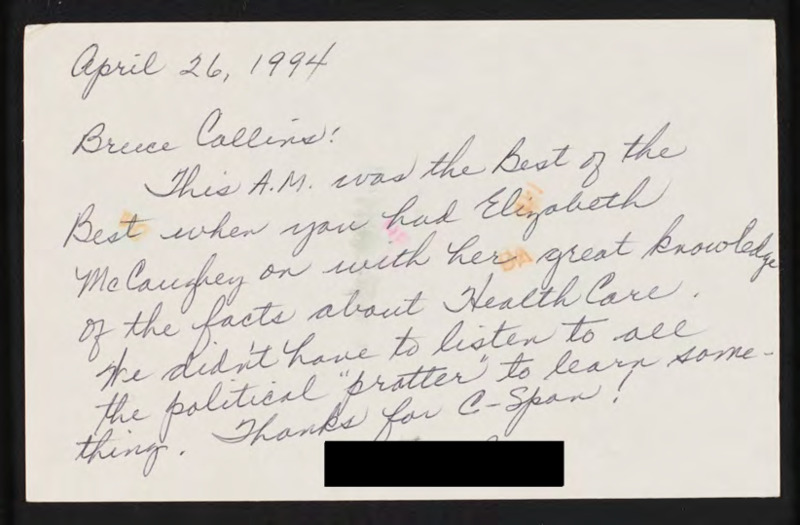 April 26, 1994
Bruce Collins:
This A.M. was the Best of the
Best when you had Elizabeth
McCaughey on with her great knowledge
of the facts about Health Care.
We didn't have to listen to all
the political "pratter" to learn some-
thing. Thanks for C-Span!